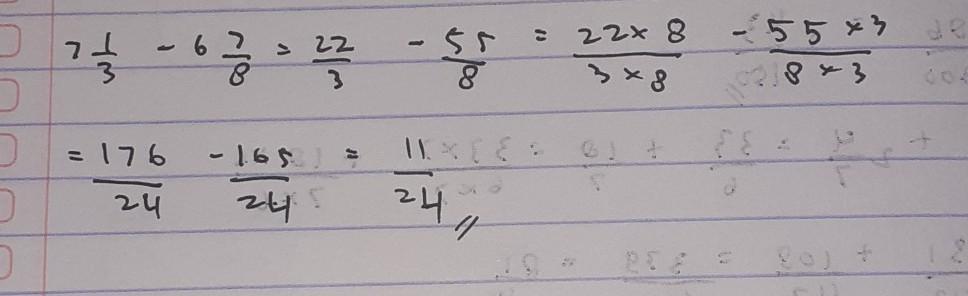 7 1/3 - 6 7/8 = 22/3 - 55/8 = 22 × 8/3 × 8 - 55 × 3/8 × 3
= 176/24 - 165/24 = 11/24 //